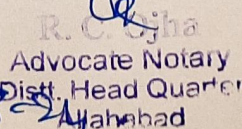 R. C. Ojha
Advocate Notary
Distt. Head Quarter
Allahabad